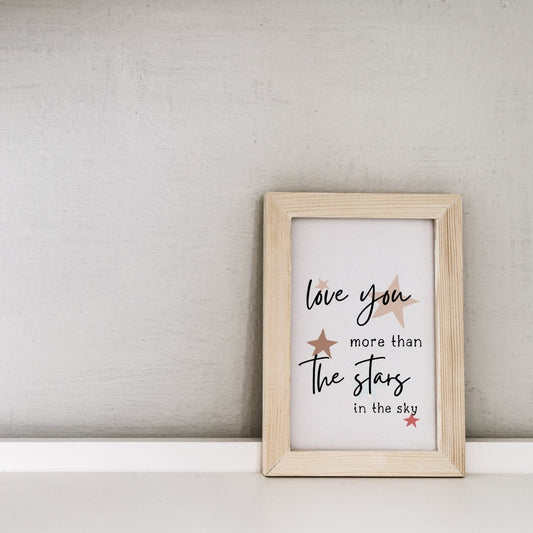 love you
more than
The stars
in the sky